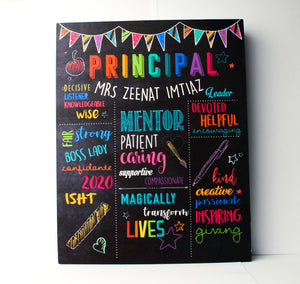 PRINCIPAL
MRS ZEENAT IMTIAZ
DECISIVE
LISTENER
KNOWLEDGEABLE
WISE
Leader
DEVOTED
HELPFUL
encouraging
MENTOR
PATIENT
caring
supportive
COMPASSIONATE
FAIR
strong
BOSS LADY
confidante
2020
ISHT
MAGICALLY
transform
LIVES
kind
creative
passionate
INSPIRING
giving